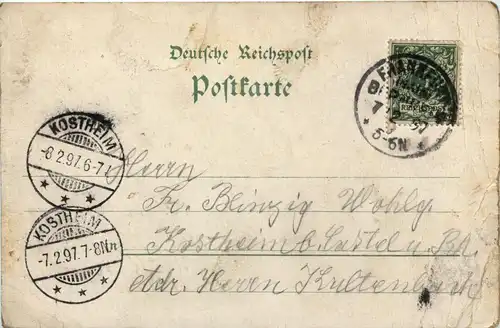 Deutsche Reichspost
Postkarte
FRANKFURT
7 2 97
5-6N
KOSTHEIM
-8 2.97.6-7
KOSTHEIM
-7.2.97.7-8Nm
Herrn
Fr. Blinzig Wohlg.
Kostheim b. Castel
Adr. Herrn